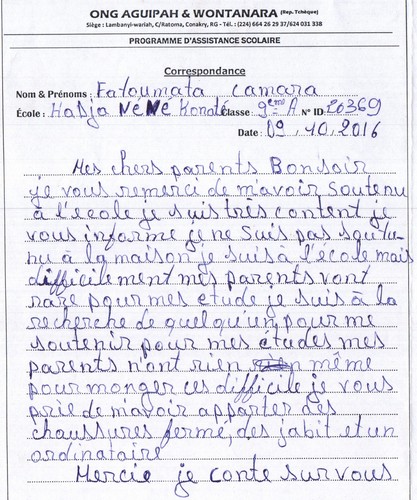 ONG AGUIPAH & WONTANARA (Rep. Tchèque)
Siège : Lambanyi-wariah, C/Ratoma, Conakry, RG - Tél. : (224) 664 26 29 37/624 031 338
PROGRAMME D'ASSISTANCE SCOLAIRE
Correspondance
Nom & Prénoms : Fatoumata camara
École : Hadja NENÉ Konaté Classe 9eme A N° ID 20369
Date : 09 10.2016
Mes chers parents Bonsoir
je vous remerci de m'avoir soutenu
à l'école je suis très content je
vous informe je ne suis pas soutu
nu à la maison je suis à l'école mais
difficilement mes parents vont
rare pour mes etude je suis à la
recherche de quelqu'un pour me
soutenir pour mes études mes
parents n'ont rien même
pour monger ces difficile je vous
prie de m'avoir apparter des
chaussures fermé, des jabit et un
ordinataire
Mercie je conte sur vous